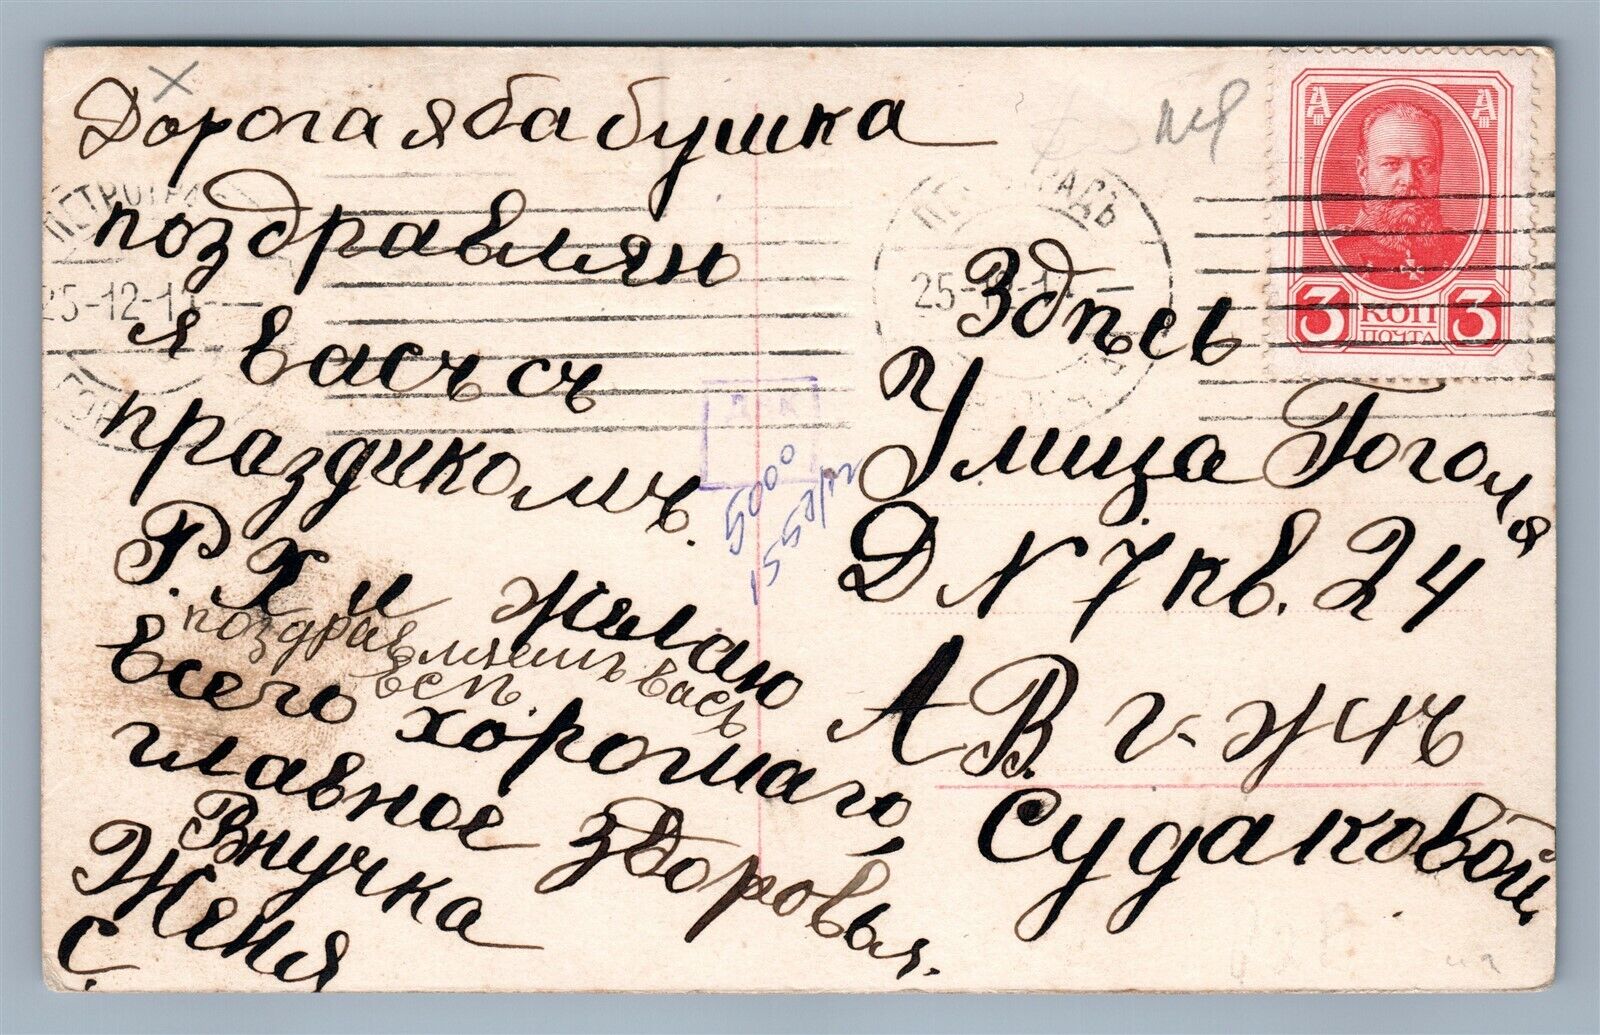 Дорогая бабушка
поздравляю
я васъ съ
праздикомъ.
Р. Х и желаю
поздравляемъ васъ
всѣ
всего хорошаго,
главное здоровья.
Внучка
Женя
С.
Здѣсь
Улица Гоголя
Д N 7 кв. 24
А. В. г-жѣ
Судаковой
ПЕТРОГРАДЪ
25-12-14
ПЕТРОГРАДЪ
25-12-14
3 КОП 3
ПОЧТА
5000